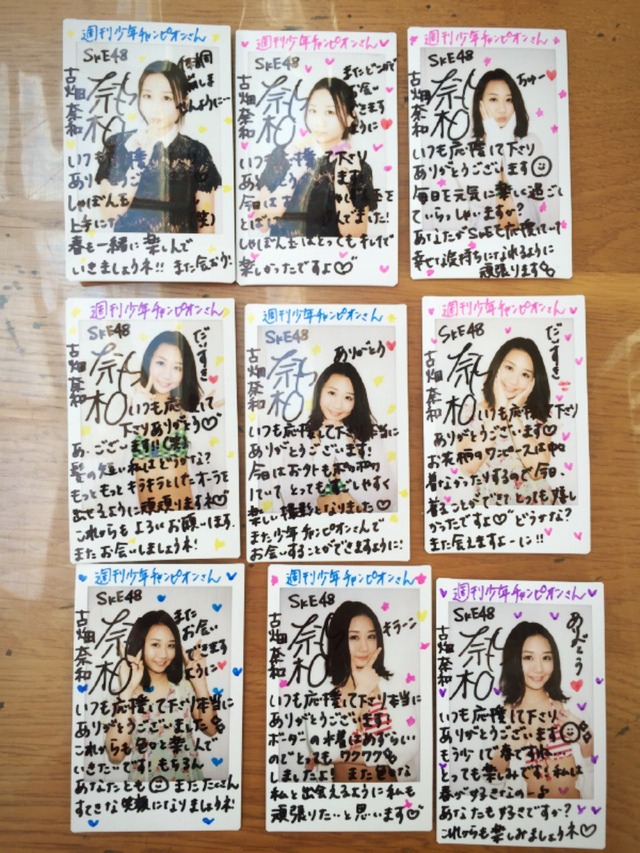 週刊少年チャンピオンさん
SKE48
古畑奈和
奈和
いつも応援して下さり
ありがとうございます
しゃぼん玉
上手に
春も一緒に楽しんで
いきましょうネ!! また会おう
週刊少年チャンピオンさん
SKE48
古畑奈和
奈和
またどこかで
お会い
できます
ように
いつも応援して下さり
ありがとうございます!
今日はお外でしゃぼん玉を
とばして
しゃぼん玉はとってもキレイで
楽しかったですよ♡
週刊少年チャンピオンさん
SKE48
古畑奈和
奈和
ちゅー
いつも応援して下さり
ありがとうございます
毎日を元気に楽しく過ごし
ていらっしゃいますか?
あなたがSKEを応援していて
幸せな気持ちになれるように
頑張ります
週刊少年チャンピオンさん
SKE48
古畑奈和
奈和
だいすき
いつも応援して
下さりありがとう♡
あ、ございます!!(笑)
髪の短い私はどうかな?
もっともっとキラキラとしたオーラを
出せるように頑張りますネ♡
これからもよろしくお願いします
またお会いしましょうネ!
週刊少年チャンピオンさん
SKE48
古畑奈和
奈和
ありがとう
いつも応援して下さり本当に
ありがとうございます!
今日は
していてとってもすごしやすく
楽しい撮影となりました♡
また少年チャンピオンさんで
お会いすることができますように!
週刊少年チャンピオンさん
SKE48
古畑奈和
奈和
だいすき
いつも応援して下さり
ありがとうございます♡
お花柄のワンピースは中々
着なかったりするので今日
着ることができてとっても嬉し
かったですよ♡どうかな?
また会えますよーに!!
週刊少年チャンピオンさん
SKE48
古畑奈和
奈和
また
お会い
できます
ように
いつも応援して下さり本当に
ありがとうございました
これからも色々と楽しんで
いきたいです!もちろん
あなたとも またたくさん
すてきな笑顔になりましょうネ!
週刊少年チャンピオンさん
SKE48
古畑奈和
奈和
キラーン
いつも応援して下さり本当に
ありがとうございます!
ボーダーの水着はめずらしい
のでとってもワクワク
しましたよ! また色々な
私と出会えるように私も
頑張りたいと思います♡
週刊少年チャンピオンさん
SKE48
古畑奈和
奈和
ありがとう
いつも応援して下さり
ありがとうございます
もう少しで春ですね…
とっても楽しみです!私は
春が好きなの〜♪
あなたも好きですか?
これからも楽しみましょうネ♡